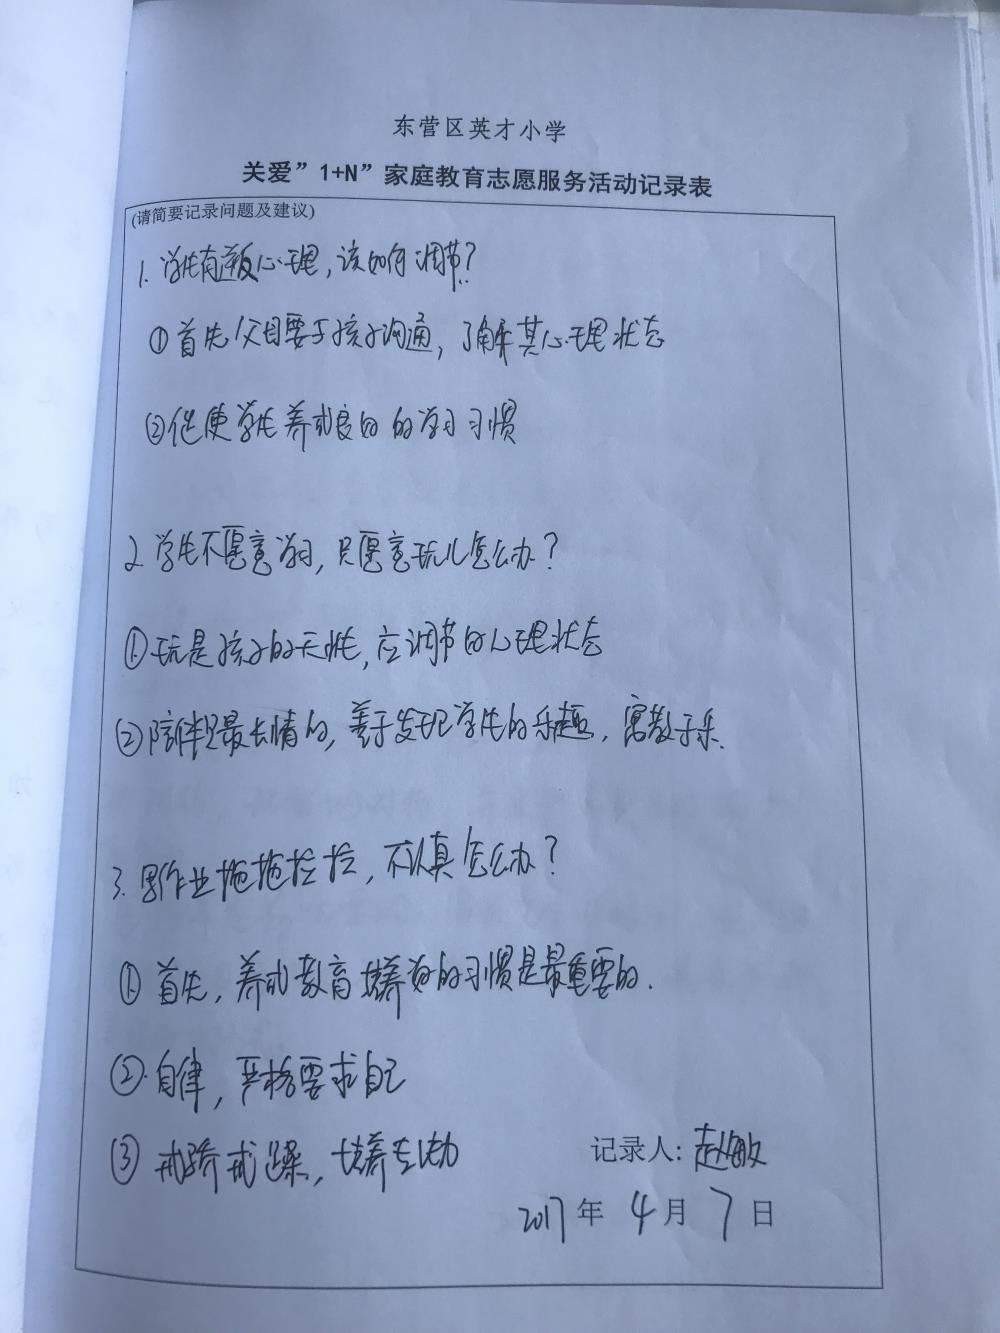 东营区英才小学
关爱”1+N”家庭教育志愿服务活动记录表
(请简要记录问题及建议)
1. 学生有逆反心理,该如何调节?
①首先父母要于孩子沟通,了解其心理状态
②促使学生养成良的的学习习惯
2. 学生不愿意学习,只愿意玩儿怎么办?
①玩是孩子的天性,应调节的心理状态
②陪伴是最长情的,善于发现学生的乐趣,寓教于乐.
3. 写作业拖拖拉拉,不认真怎么办?
① 首先,养成教育培养好的习惯是最重要的.
②. 自律,严格要求自己
③ 戒骄戒躁,培养专注力
记录人: 赵敏
2017年 4月 7日